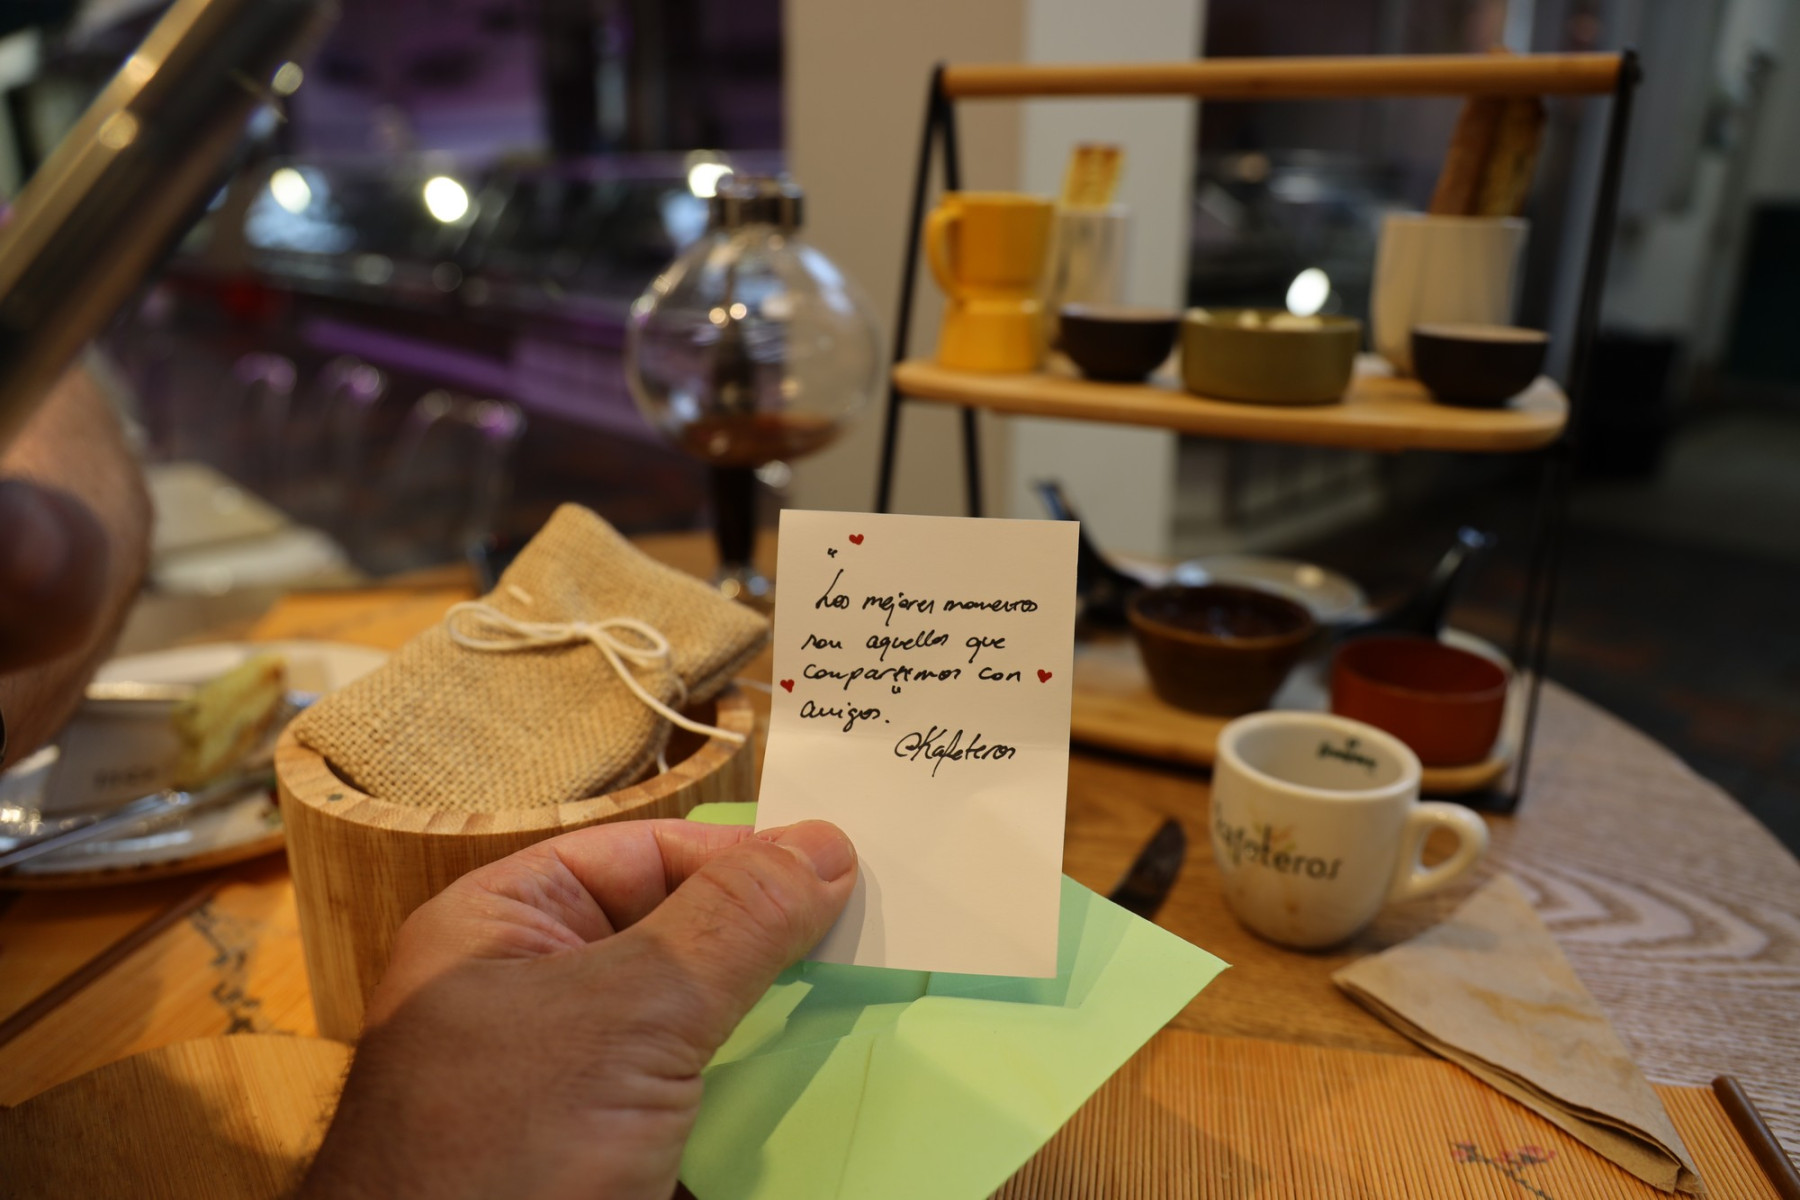 "
Los mejores momentos
son aquellos que
compartimos con
amigos."
@Kafeteros
Kafeteros